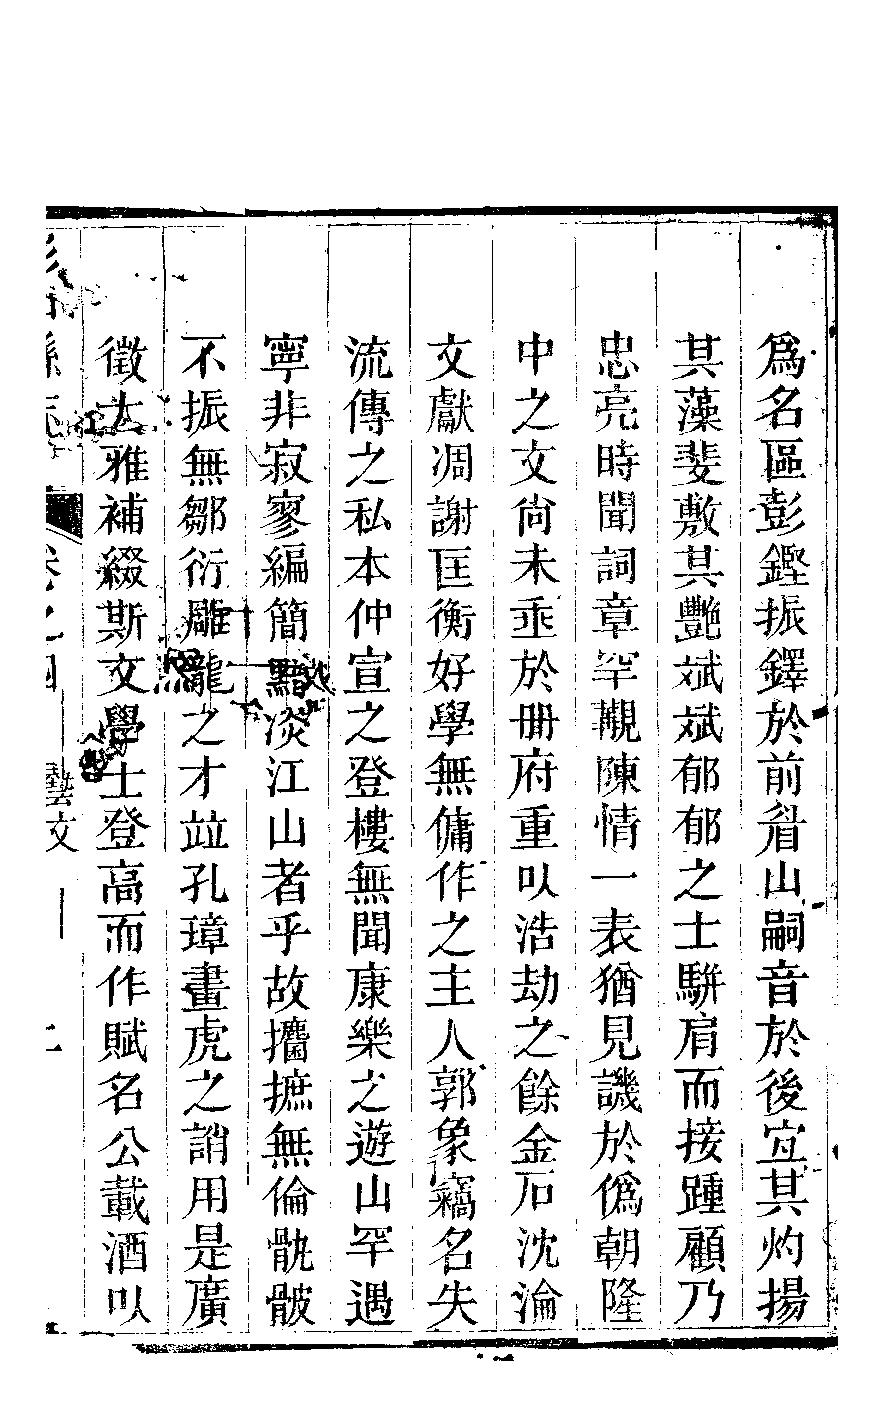 為名區彭鏗振鐸於前眉山嗣音於後宜其灼揚
其藻斐敷其艷斌斌郁郁之士駢肩而接踵顧乃
忠亮時聞詞章罕覯陳情一表猶見譏於僞朝隆
中之文尙未垂於冊府重㕥浩劫之餘金石沈淪
文獻凋謝匡衡好學無傭作之主人郭象竊名失
流傳之私本仲宣之登樓無聞康樂之遊山罕遇
寧非寂寥編簡黯淡江山者乎故攟摭無倫骩骳
不振無鄒衍雕龍之才竝孔璋畫虎之誚用是廣
徵大雅補綴斯文學士登高而作賦名公載酒㕥
縣志 卷之四 藝文